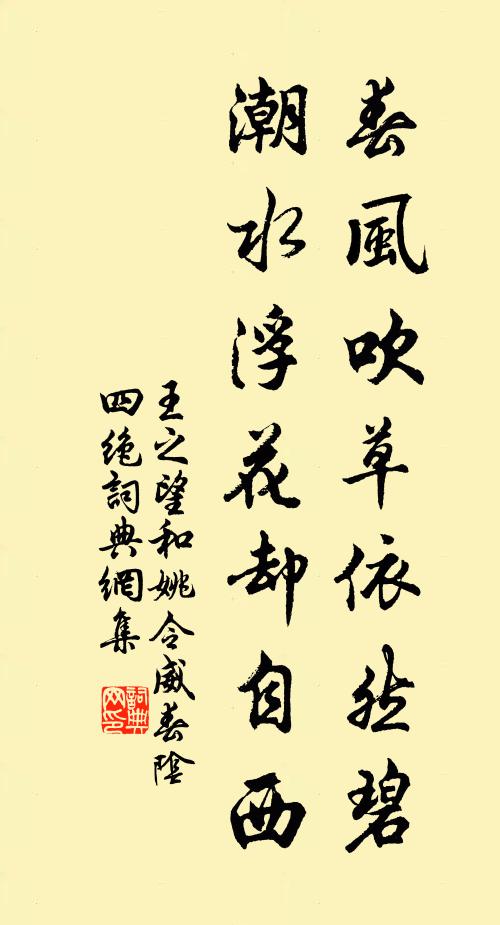 春風吹草依然碧
潮水浮花却自西
王之望和姚令威春陰
四絶詞典網集
詞典网印